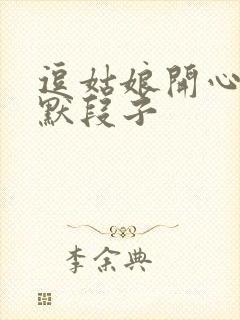 逗姑娘開心
默段子
李余典